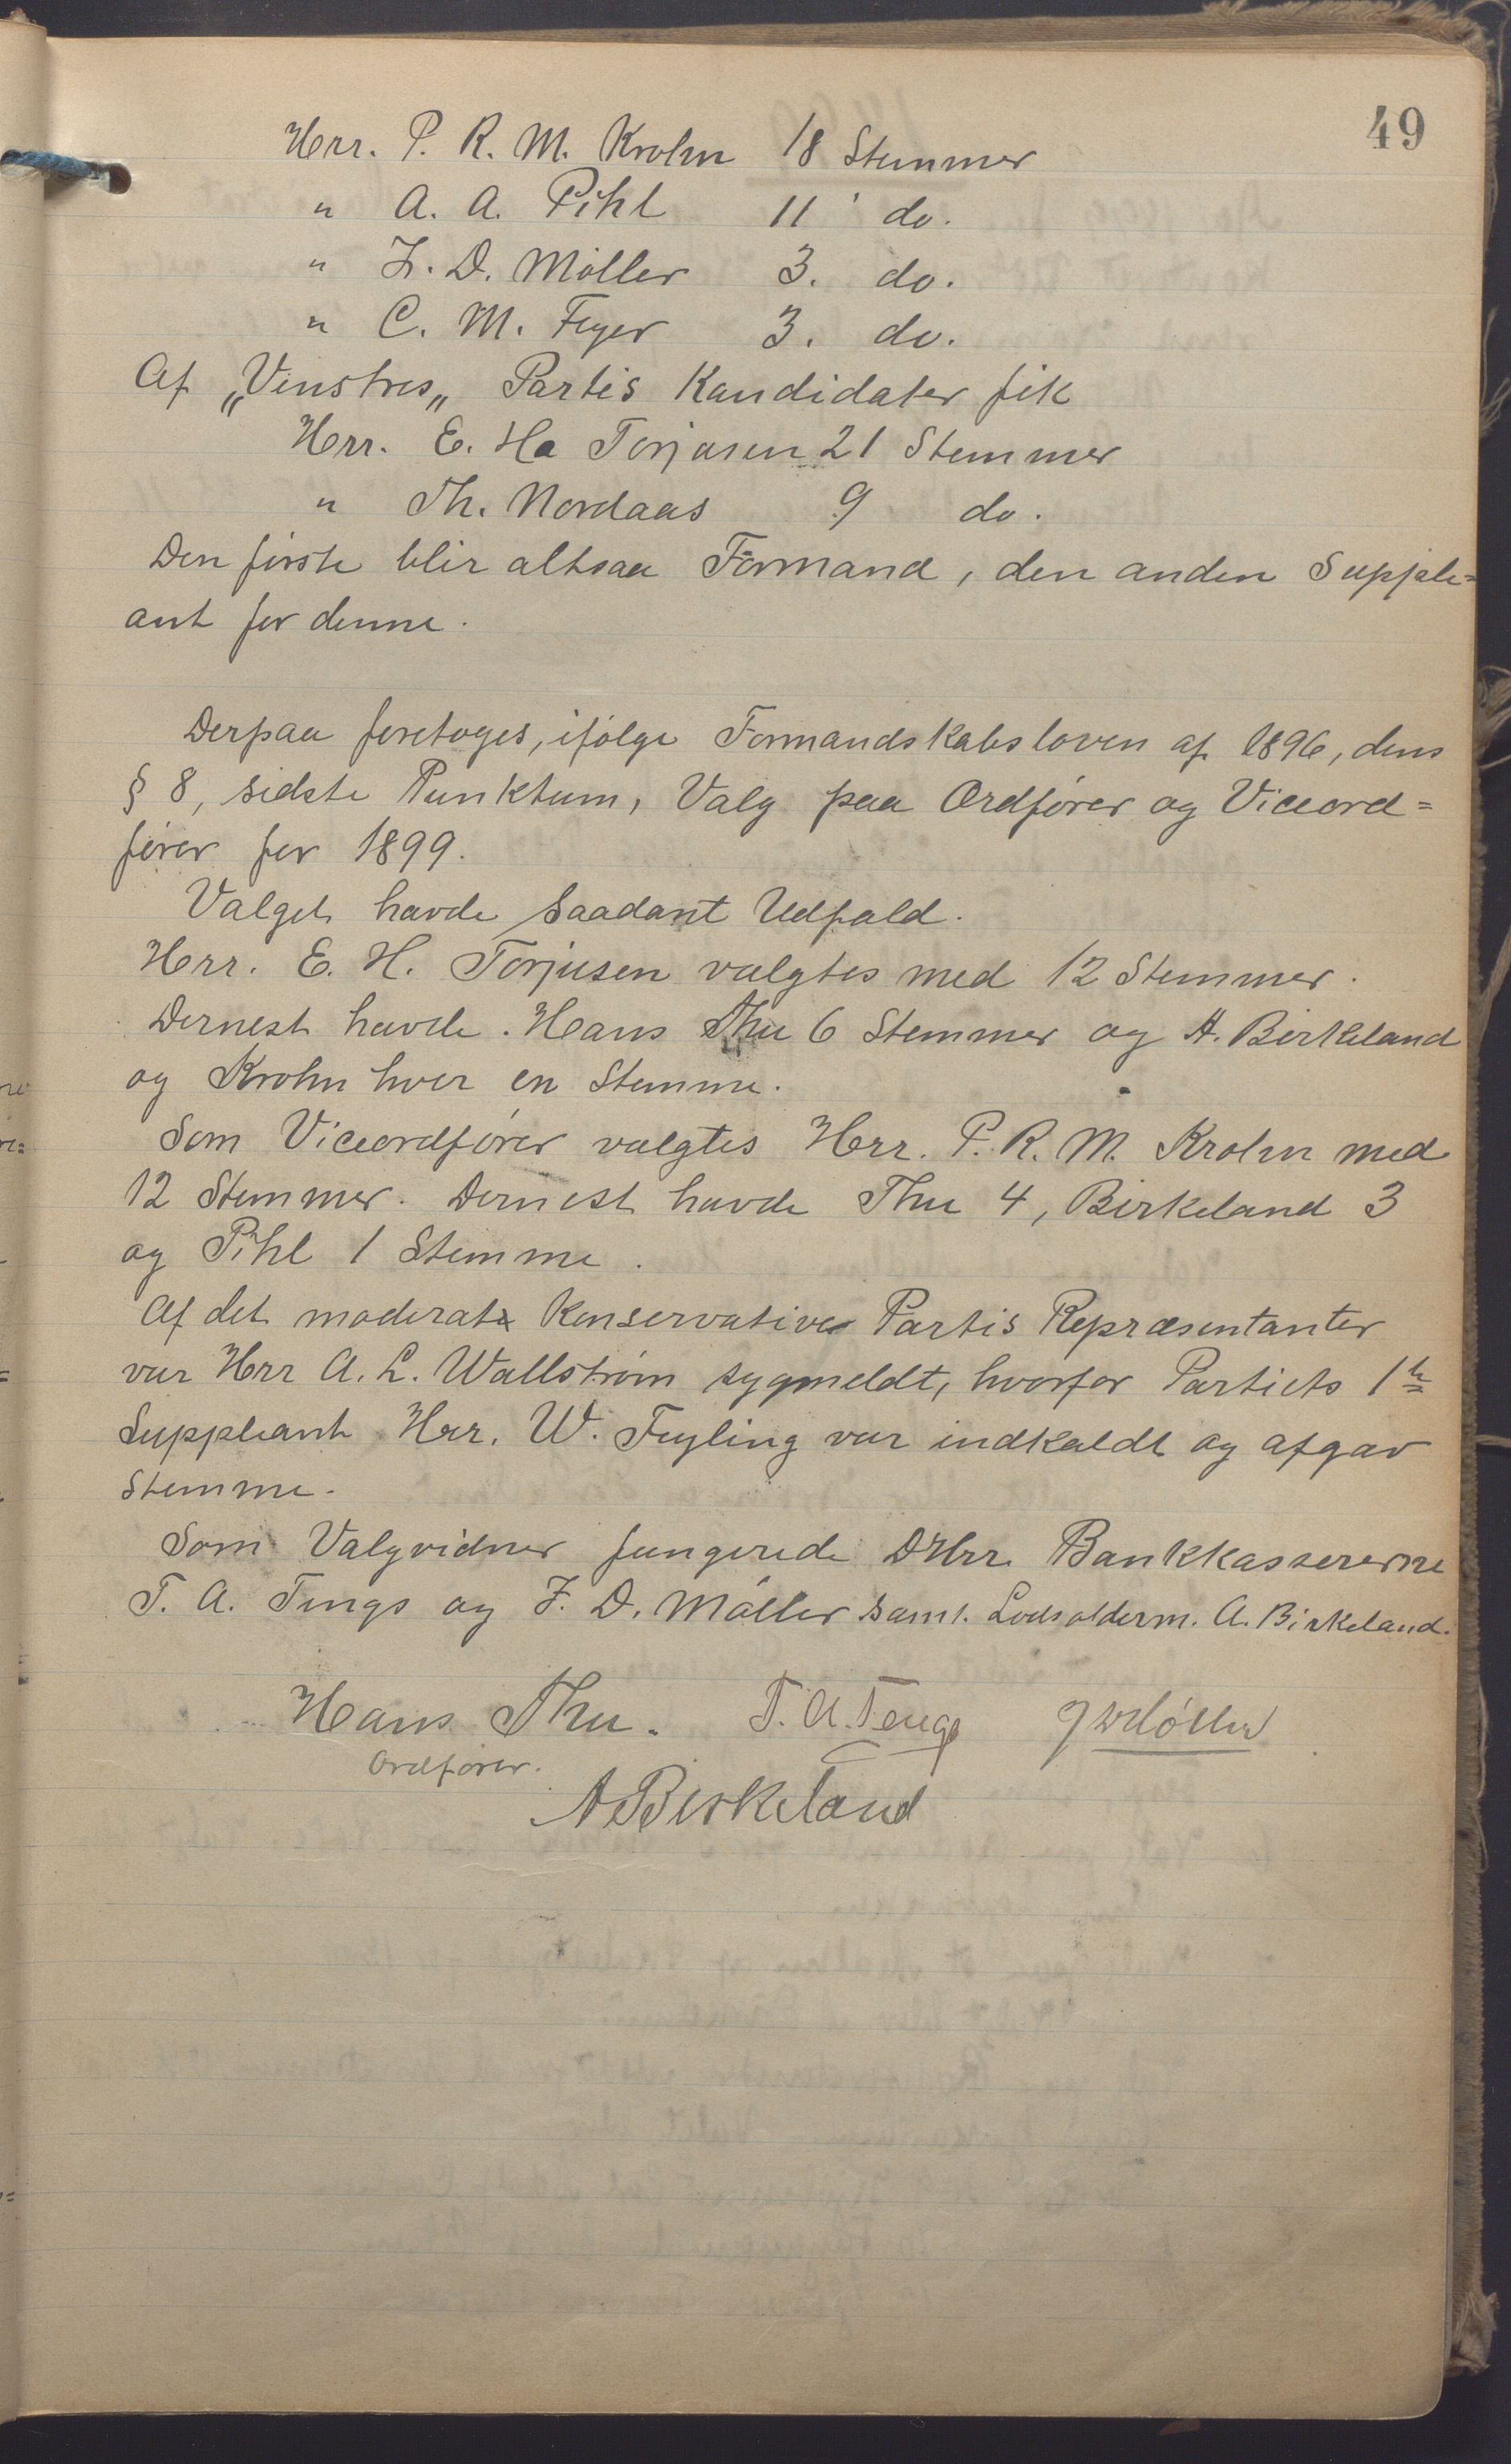 49
Herr. P. R. M. Krohn 18 Stemmer
" A. A. Pihl 11 do.
" J. D. Møller 3. do.
" C. M. Feyer 3. do.
Af „Venstres„ Partis Kandidater fik
Herr. E. Ha Torjusen 21 Stemmer
" Th. Nordaas 9 do.
Den første blir altsaa Formand, den anden Supple=
ant for denne.
Derpaa foretoges, ifølge Formandskabsloven af 1896, dens
§ 8, sidste Punktum, Valg paa Ordfører og Viceord=
fører for 1899.
Valget havde saadant Udfald.
Herr. E. H. Torjusen valgtes med 12 Stemmer.
Dernest havde Hans Thu 6 Stemmer og A. Birkeland
og Krohn hver en Stemme.
Som Viceordfører valgtes Herr. P. R. M. Krohn med
12 Stemmer. Dernest havde Thu 4, Birkeland 3
og Pihl 1 Stemme.
Af det moderat Konservative Partis Repræsentanter
var Herr A. L. Wallstrøm sygmeldt, hvorfor Partiets 1ste
Suppleant Herr. W. Fuyling var indkaldt og afgav
Stemme.
Som Valgvidner fungerede DHrr. Bankkassererne
T. A. Tengs og J. D. Møller samt. Lodsolderm. A. Birkeland.
Hans Thu. T. A. Tengs J D Møller
Ordfører.
A Birkeland